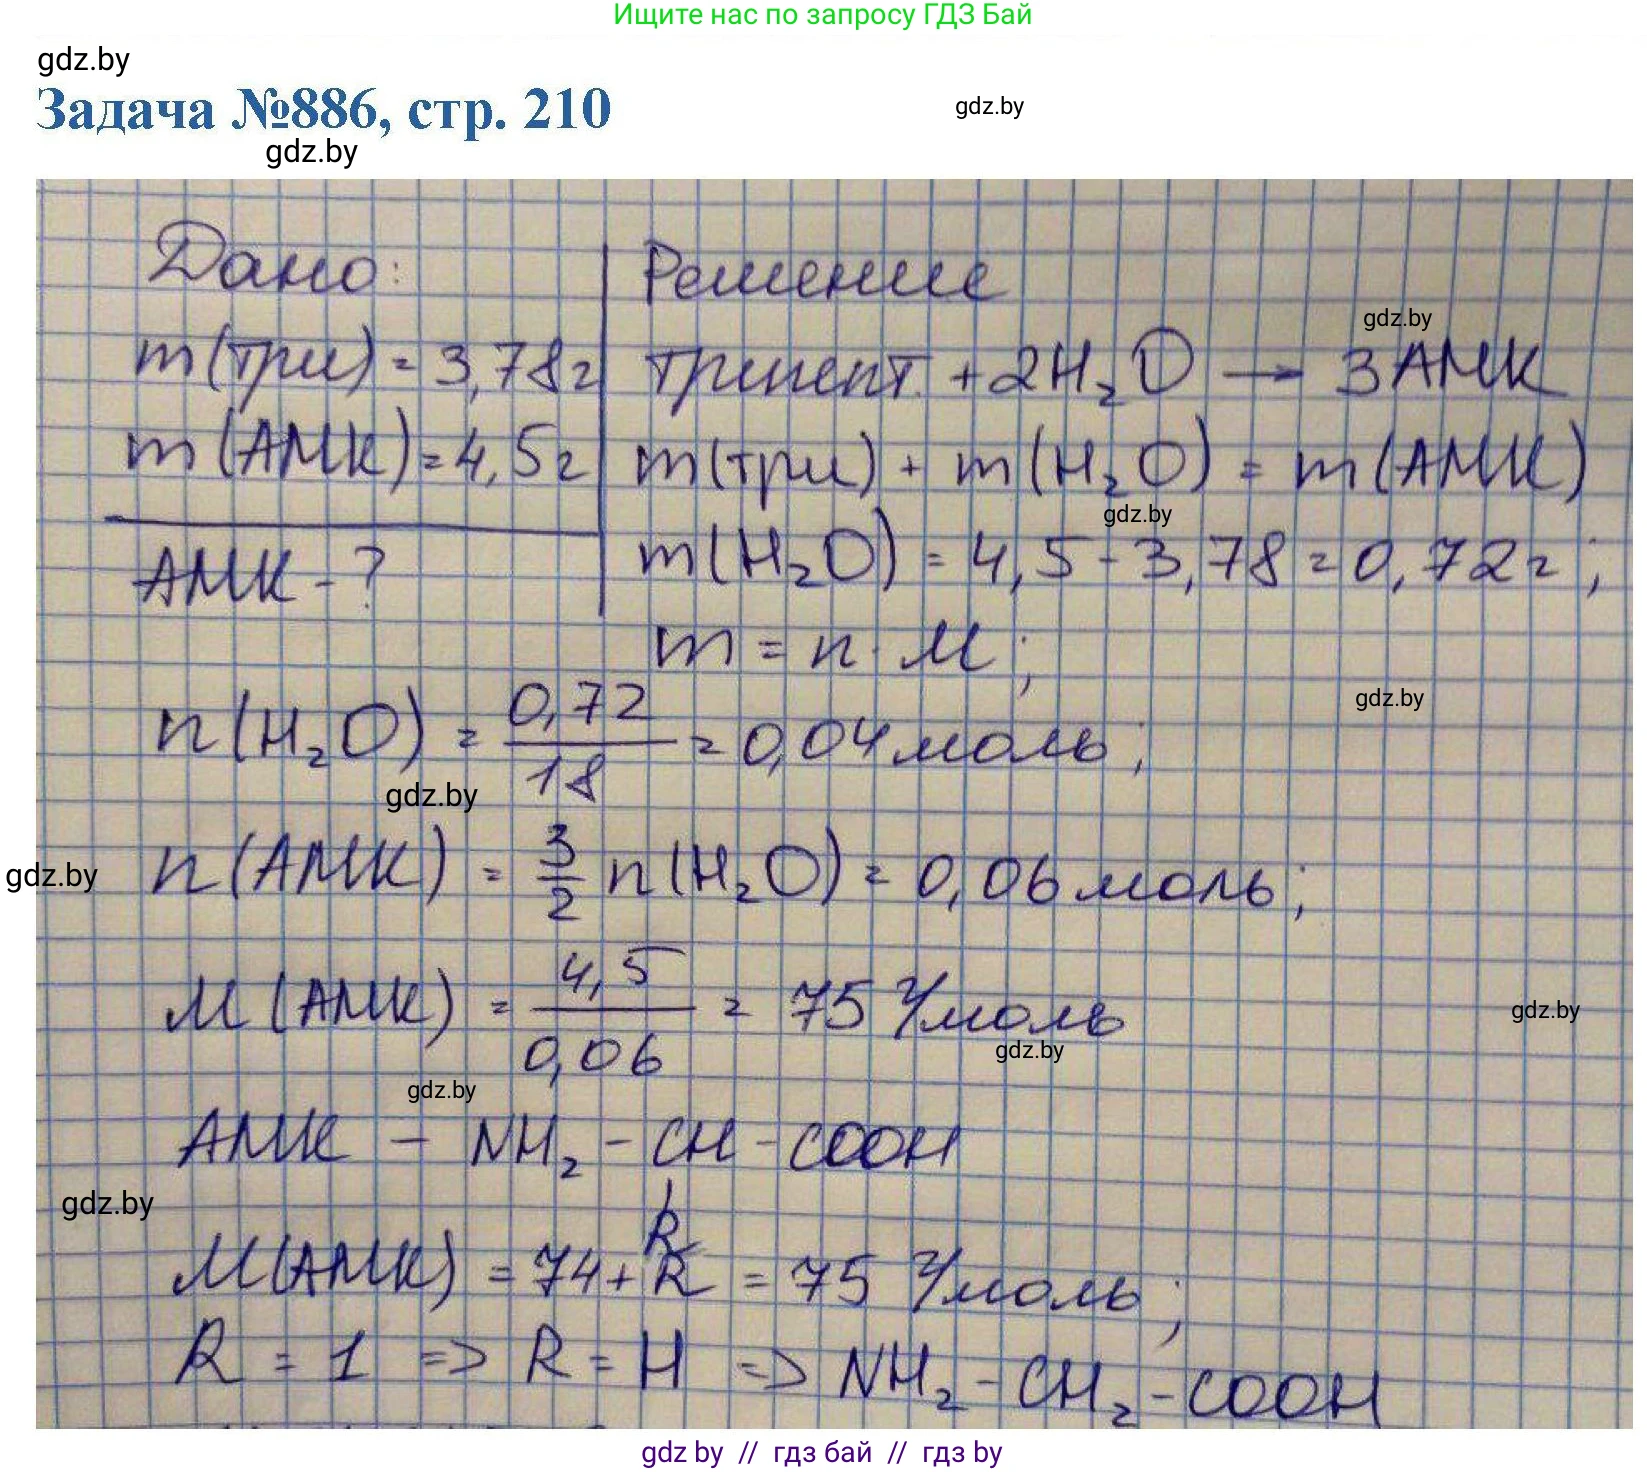 Ищите нас по запросу ГДЗ Бай
gdz.by
Задача №886, стр. 210
gdz.by
gdz.by
Дано:
m(три) = 3,78г
m(АМК) = 4,5г
АМК - ?
Решение
трипепт. + 2H₂O → 3АМК
gdz.by
m(три) + m(H₂O) = m(АМК)
gdz.by
m(H₂O) = 4,5 - 3,78 = 0,72г;
m = n · M;
gdz.by
n(H₂O) = 0,72/18 = 0,04 моль;
gdz.by
n(АМК) = 3/2 n(H₂O) = 0,06 моль;
gdz.by
M(АМК) = 4,5/0,06 = 75 г/моль
gdz.by
gdz.by
gdz.by
АМК - NH₂ - CH - COOH
R
gdz.by
M(АМК) = 74 + R = 75 г/моль;
R = 1 => R = H => NH₂ - CH₂ - COOH
gdz by // гдз бай // гдз by